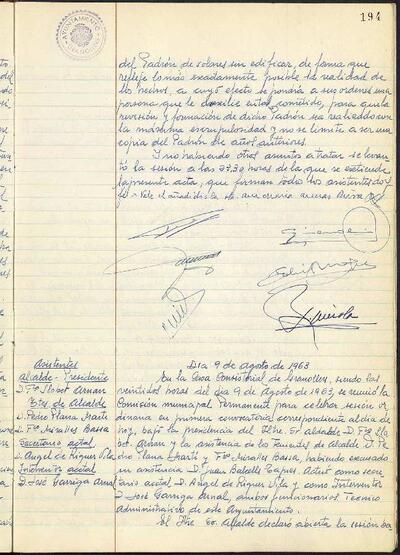 194
AYUNTAMIENTO
del Padrón de solares sin edificar, de forma que
refleje lo más exactamente posible la realidad de
los hechos, a cuyo efecto se pondría a sus ordenes una
persona que le auxilie en tal cometido, para que la
revisión y formación de dicho Padrón sea realizado con
la máxima escrupulosidad y no se limite a ser una
copia del Padrón de años anteriores.
Y no habiendo otros asuntos a tratar se levan-
tó la sesión a las horas de la que se extiende
la presente acta, que firman todos los asistentes doy
fe = Vale el añadido
Asistentes
Alcalde-Presidente
D. Fco Llobet Arnan
Ttes. de Alcalde
D. Pedro Plana Martí
D. Fco Miralles Bassa
Secretario acctal
D. Angel de Riquer Vila
Interventor acctal
D. José Garriga Arnal
Dia 9 de agosto de 1963
En la Casa Consistorial de Granollers, siendo las
veintidos horas del dia 9 de agosto de 1963, se reunió la
Comisión municipal Permanente para celebrar sesión or-
dinaria en primera convocatoria correspondiente al dia de
hoy, bajo la presidencia del Iltre. Sr. Alcalde D. Fco Llo-
bet Arnan y la asistencia de los Tenientes de Alcalde D. Pe-
dro Plana Martí y Fco Miralles Bassa, habiendo excusado
su asistencia D. Juan. Actuó como secre-
tario acctal D. Angel de Riquer Vila y como Interventor
D. José Garriga Arnal, ambos funcionarios Tecnico
administrativo de este Ayuntamiento.
El Iltre. Sr. Alcalde declaró abierta la sesión